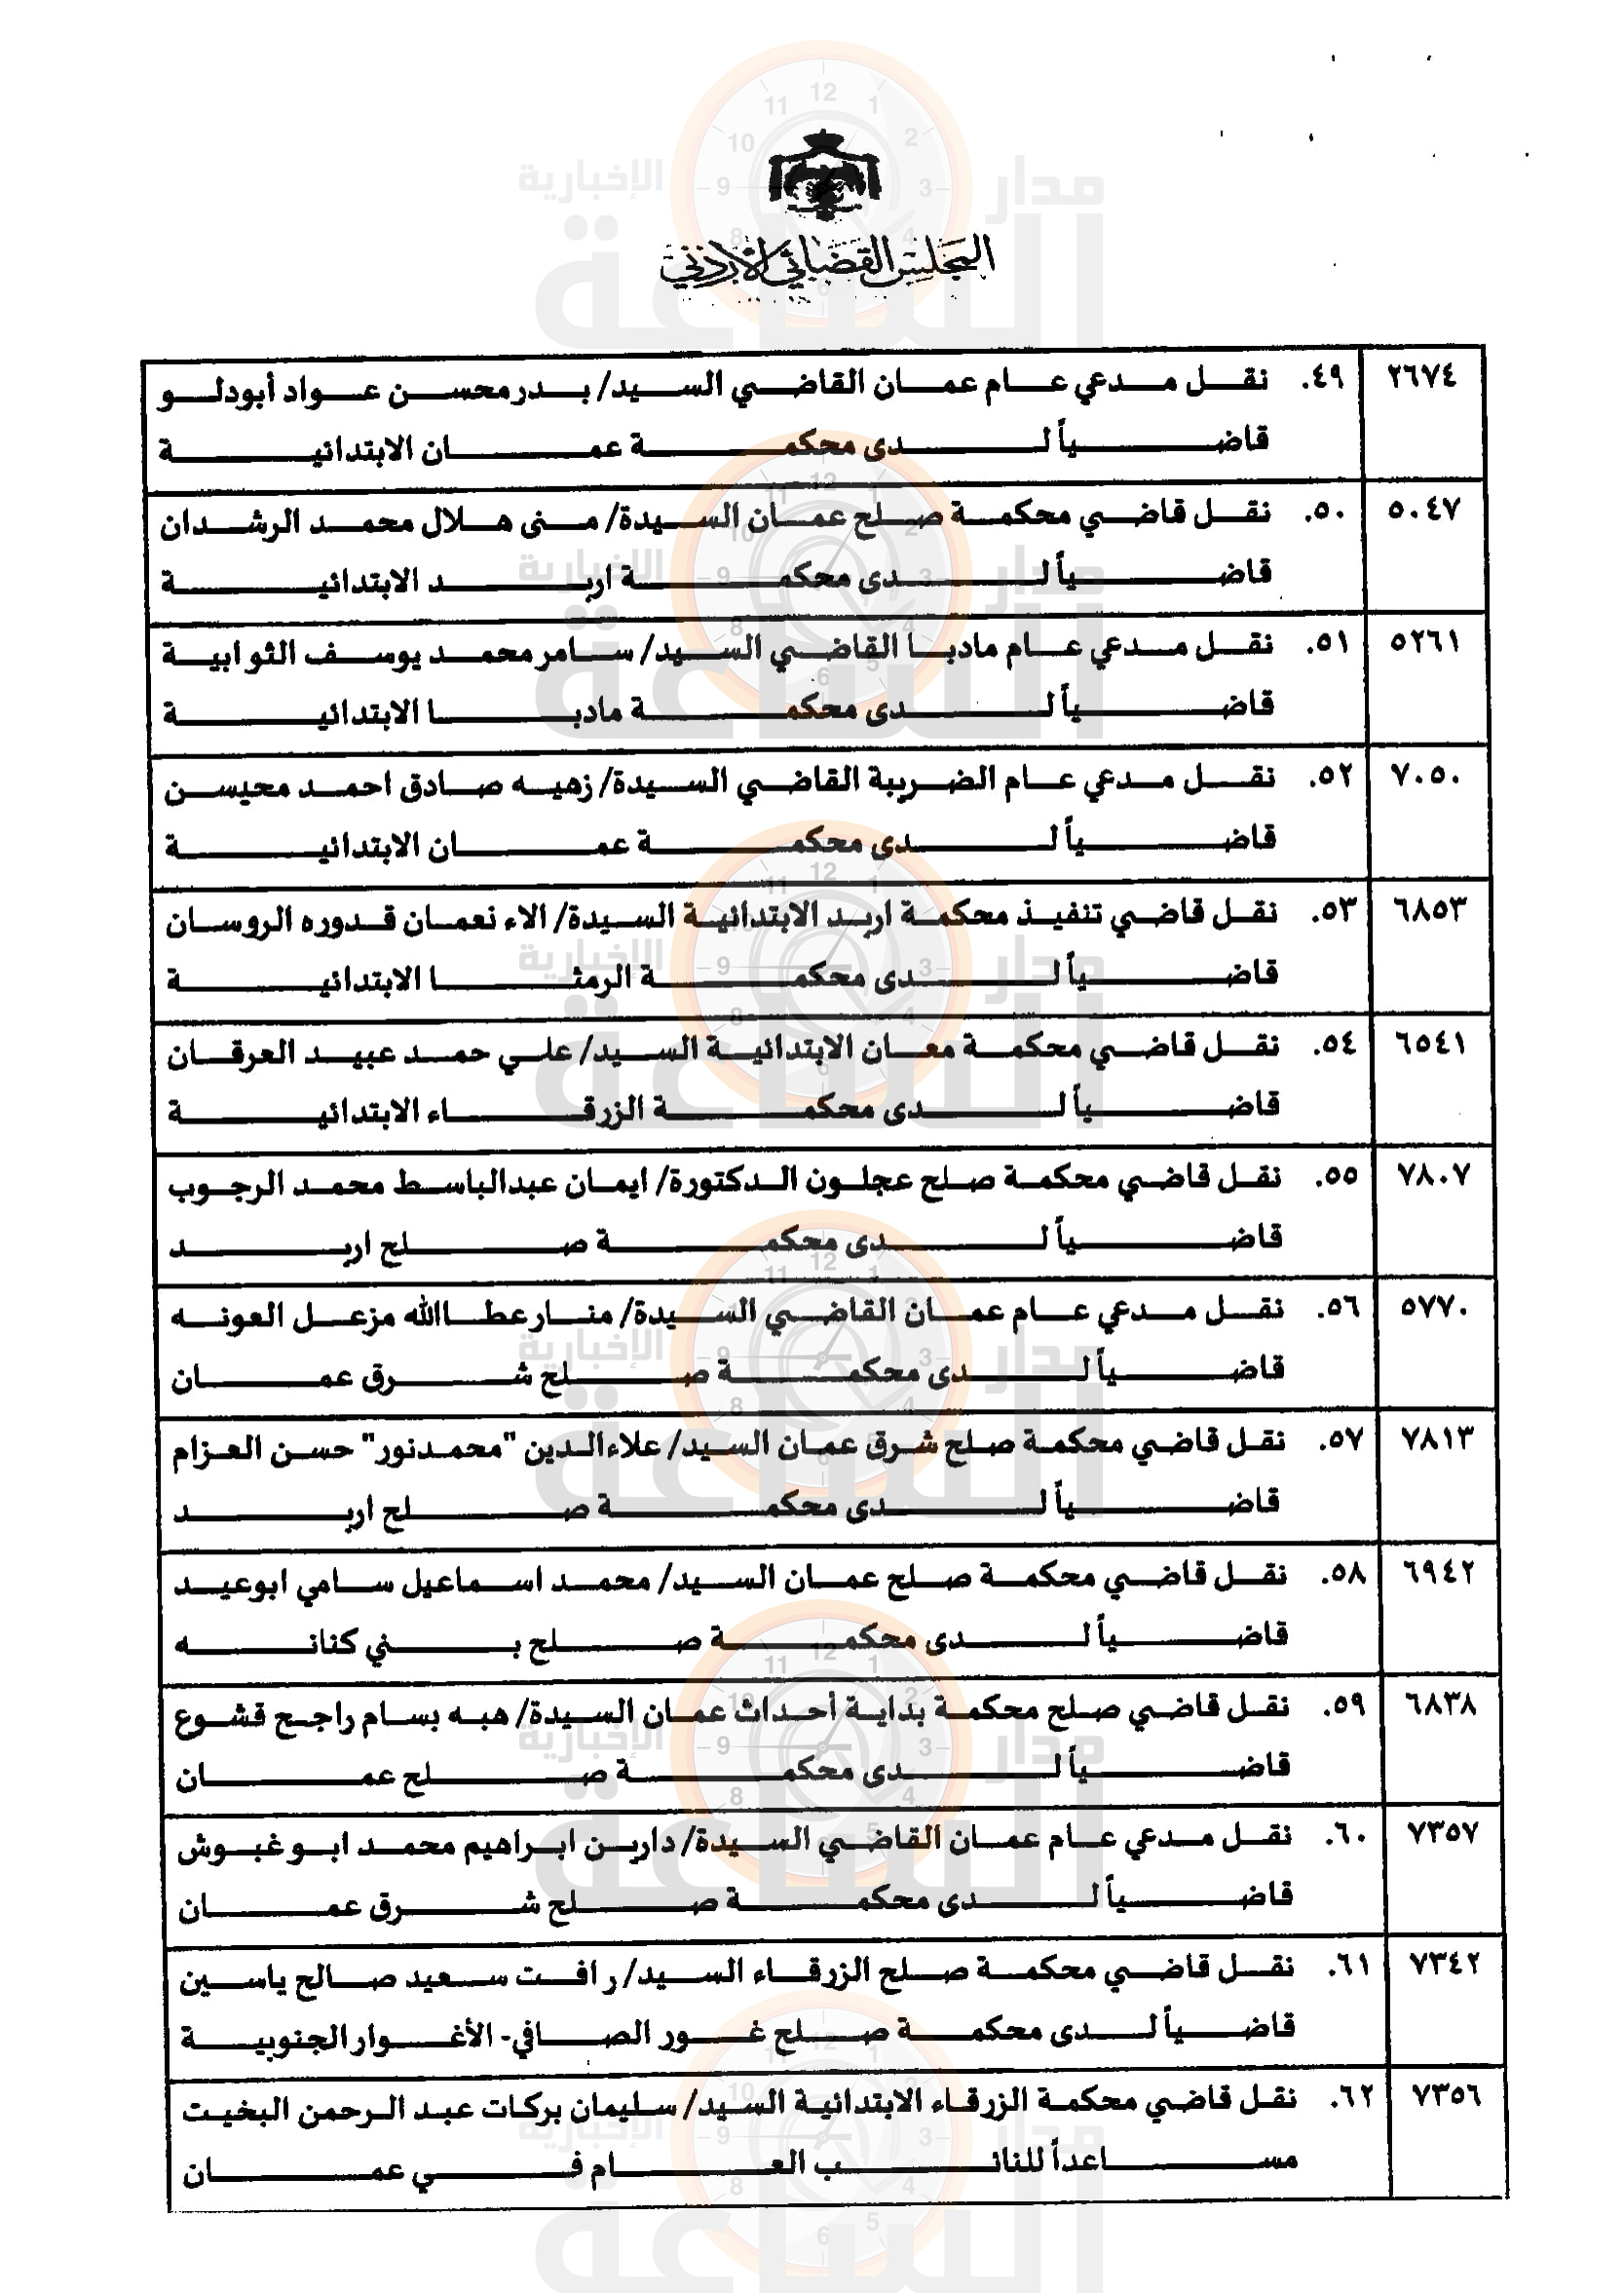 المجلس القضائي الأردني
٢٦٧٤ ٤٩. نقل مدعي عام عمان القاضي السيد/ بدر محسن عواد أبودلو
قاضياً لدى محكمة عمان الابتدائية
٥٠٤٧ ٥٠. نقل قاضي محكمة صلح عمان السيدة/ منى هلال محمد الرشدان
قاضياً لدى محكمة اربد الابتدائية
٥٢٦١ ٥١. نقل مدعي عام مادبا القاضي السيد/ سامر محمد يوسف الثوابية
قاضياً لدى محكمة مادبا الابتدائية
٧٠٥٠ ٥٢. نقل مدعي عام الضريبة القاضي السيدة/ زهيه صادق احمد محيسن
قاضياً لدى محكمة عمان الابتدائية
٦٨٥٣ ٥٣. نقل قاضي تنفيذ محكمة اربد الابتدائية السيدة/ الاء نعمان قدوره الروسان
قاضياً لدى محكمة الرمثا الابتدائية
٦٥٤١ ٥٤. نقل قاضي محكمة معان الابتدائية السيد/ علي حمد عبيد العرقان
قاضياً لدى محكمة الزرقاء الابتدائية
٧٨٠٧ ٥٥. نقل قاضي محكمة صلح عجلون الدكتورة/ ايمان عبدالباسط محمد الرجوب
قاضياً لدى محكمة صلح اربد
٥٧٧٠ ٥٦. نقل مدعي عام عمان القاضي السيدة/ منار عطاالله مزعل العونه
قاضياً لدى محكمة صلح شرق عمان
٧٨١٣ ٥٧. نقل قاضي محكمة صلح شرق عمان السيد/ علاءالدين "محمدنور" حسن العزام
قاضياً لدى محكمة صلح اربد
٦٩٤٢ ٥٨. نقل قاضي محكمة صلح عمان السيد/ محمد اسماعيل سامي ابوعيد
قاضياً لدى محكمة صلح بني كنانه
٦٨٣٨ ٥٩. نقل قاضي صلح محكمة بداية أحداث عمان السيدة/ هبه بسام راجح قشوع
قاضياً لدى محكمة صلح عمان
٧٣٥٧ ٦٠. نقل مدعي عام عمان القاضي السيدة/ دارين ابراهيم محمد ابو غبوش
قاضياً لدى محكمة صلح شرق عمان
٧٣٤٢ ٦١. نقل قاضي محكمة صلح الزرقاء السيد/ رافت سعيد صالح ياسين
قاضياً لدى محكمة صلح غور الصافي- الأغوار الجنوبية
٧٣٥٦ ٦٢. نقل قاضي محكمة الزرقاء الابتدائية السيد/ سليمان بركات عبد الرحمن البخيت
مساعداً للنائب العام في عمان